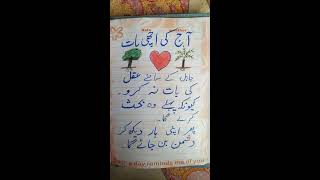 آج کی اچھی بات
جاہل کے سامنے عقل
کی بات نہ کرو۔
کیونکہ پہلے وہ بحث
کرے گا۔
پھر اپنی ہار دیکھ کر
دشمن بن جائے گا۔
day reminds me of you